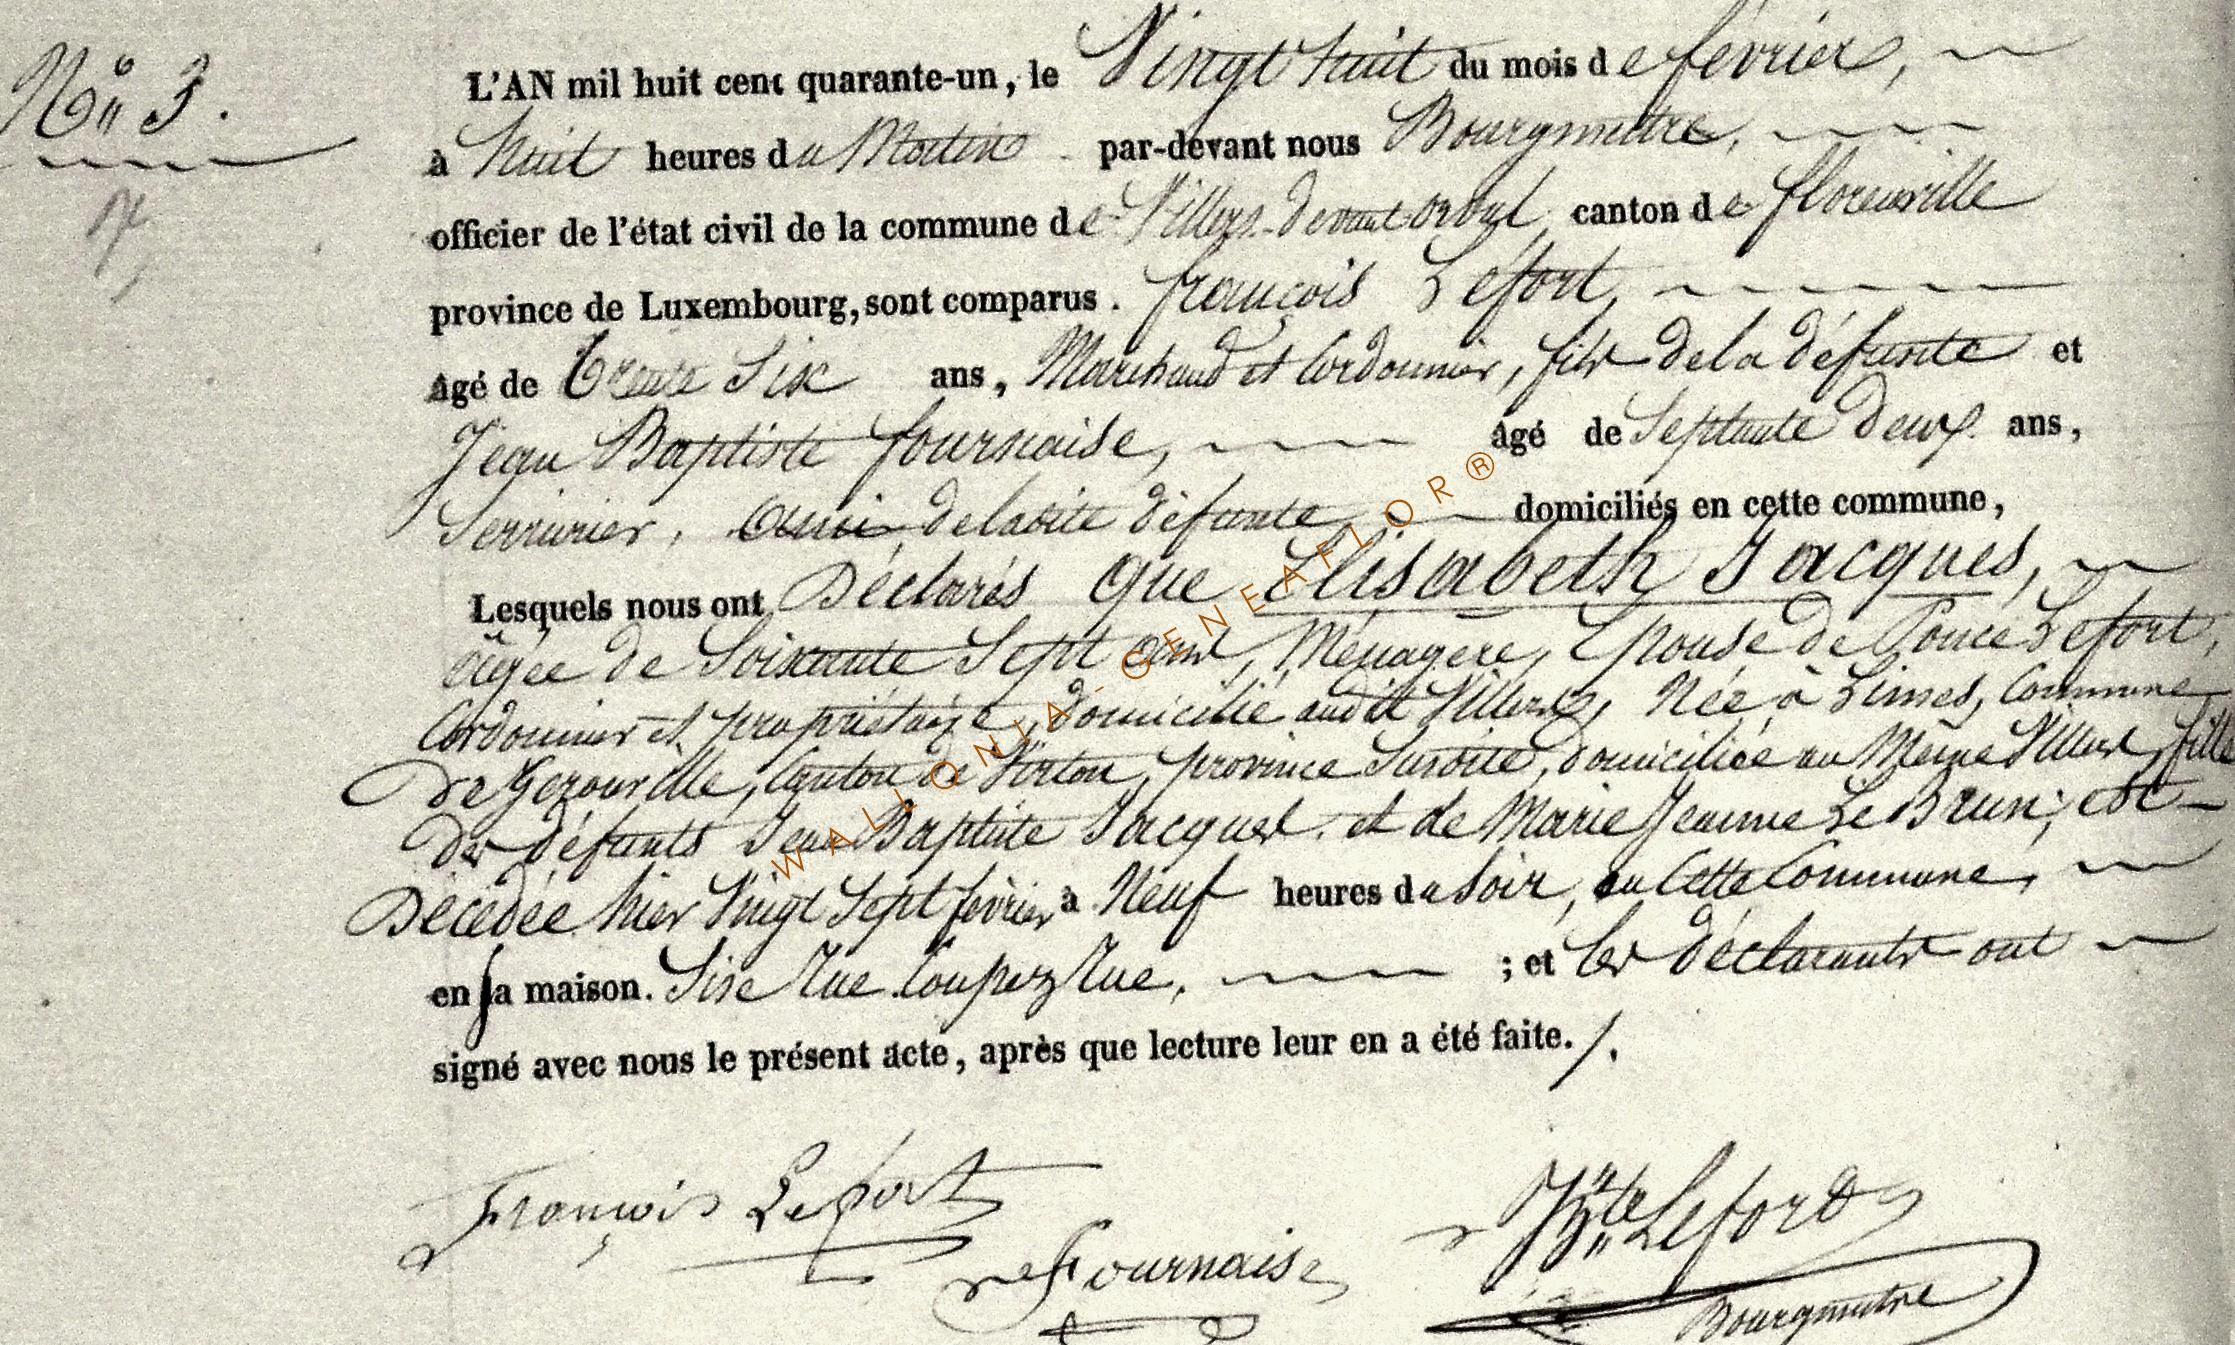 N° 3.
L'AN mil huit cent quarante-un, le Vingt huit du mois de février,
à huit heures du Matin par-devant nous Bourgmetre,
officier de l'état civil de la commune de Villers-devant orval, canton de florenville
province de Luxembourg, sont comparus. françois Lefort,
âgé de trente Six ans, Marchand et Cordonnier, fils de la défunte et
Jean Baptiste fournaise, âgé de Septante deux ans,
Serrurier, ami de ladite défunte domiciliés en cette commune,
Lesquels nous ont Déclarés que Elisabeth Jacques,
âgée de Soixante Sept ans, Ménagère, Epouse de Ponce Lefort,
Cordonnier et propriétaire, domicilié audit Villers, Née à Limes, Commune
de Gerouville, Canton de Virton, province Susdite, domiciliée au Même Villers, fille
des défunts Jean Baptiste Jacques et de Marie Jeanne Le Brun; est
Décédée hier Vingt Sept février à Neuf heures du Soir, en Cette Commune,
en sa maison. Sise Rue Coupez Rue, ; et les déclarants ont
signé avec nous le présent acte, après que lecture leur en a été faite./.
François Lefort
Fournaise
JBte Lefort
Bourgmetre
WALLONIA-GENEAFLOR®